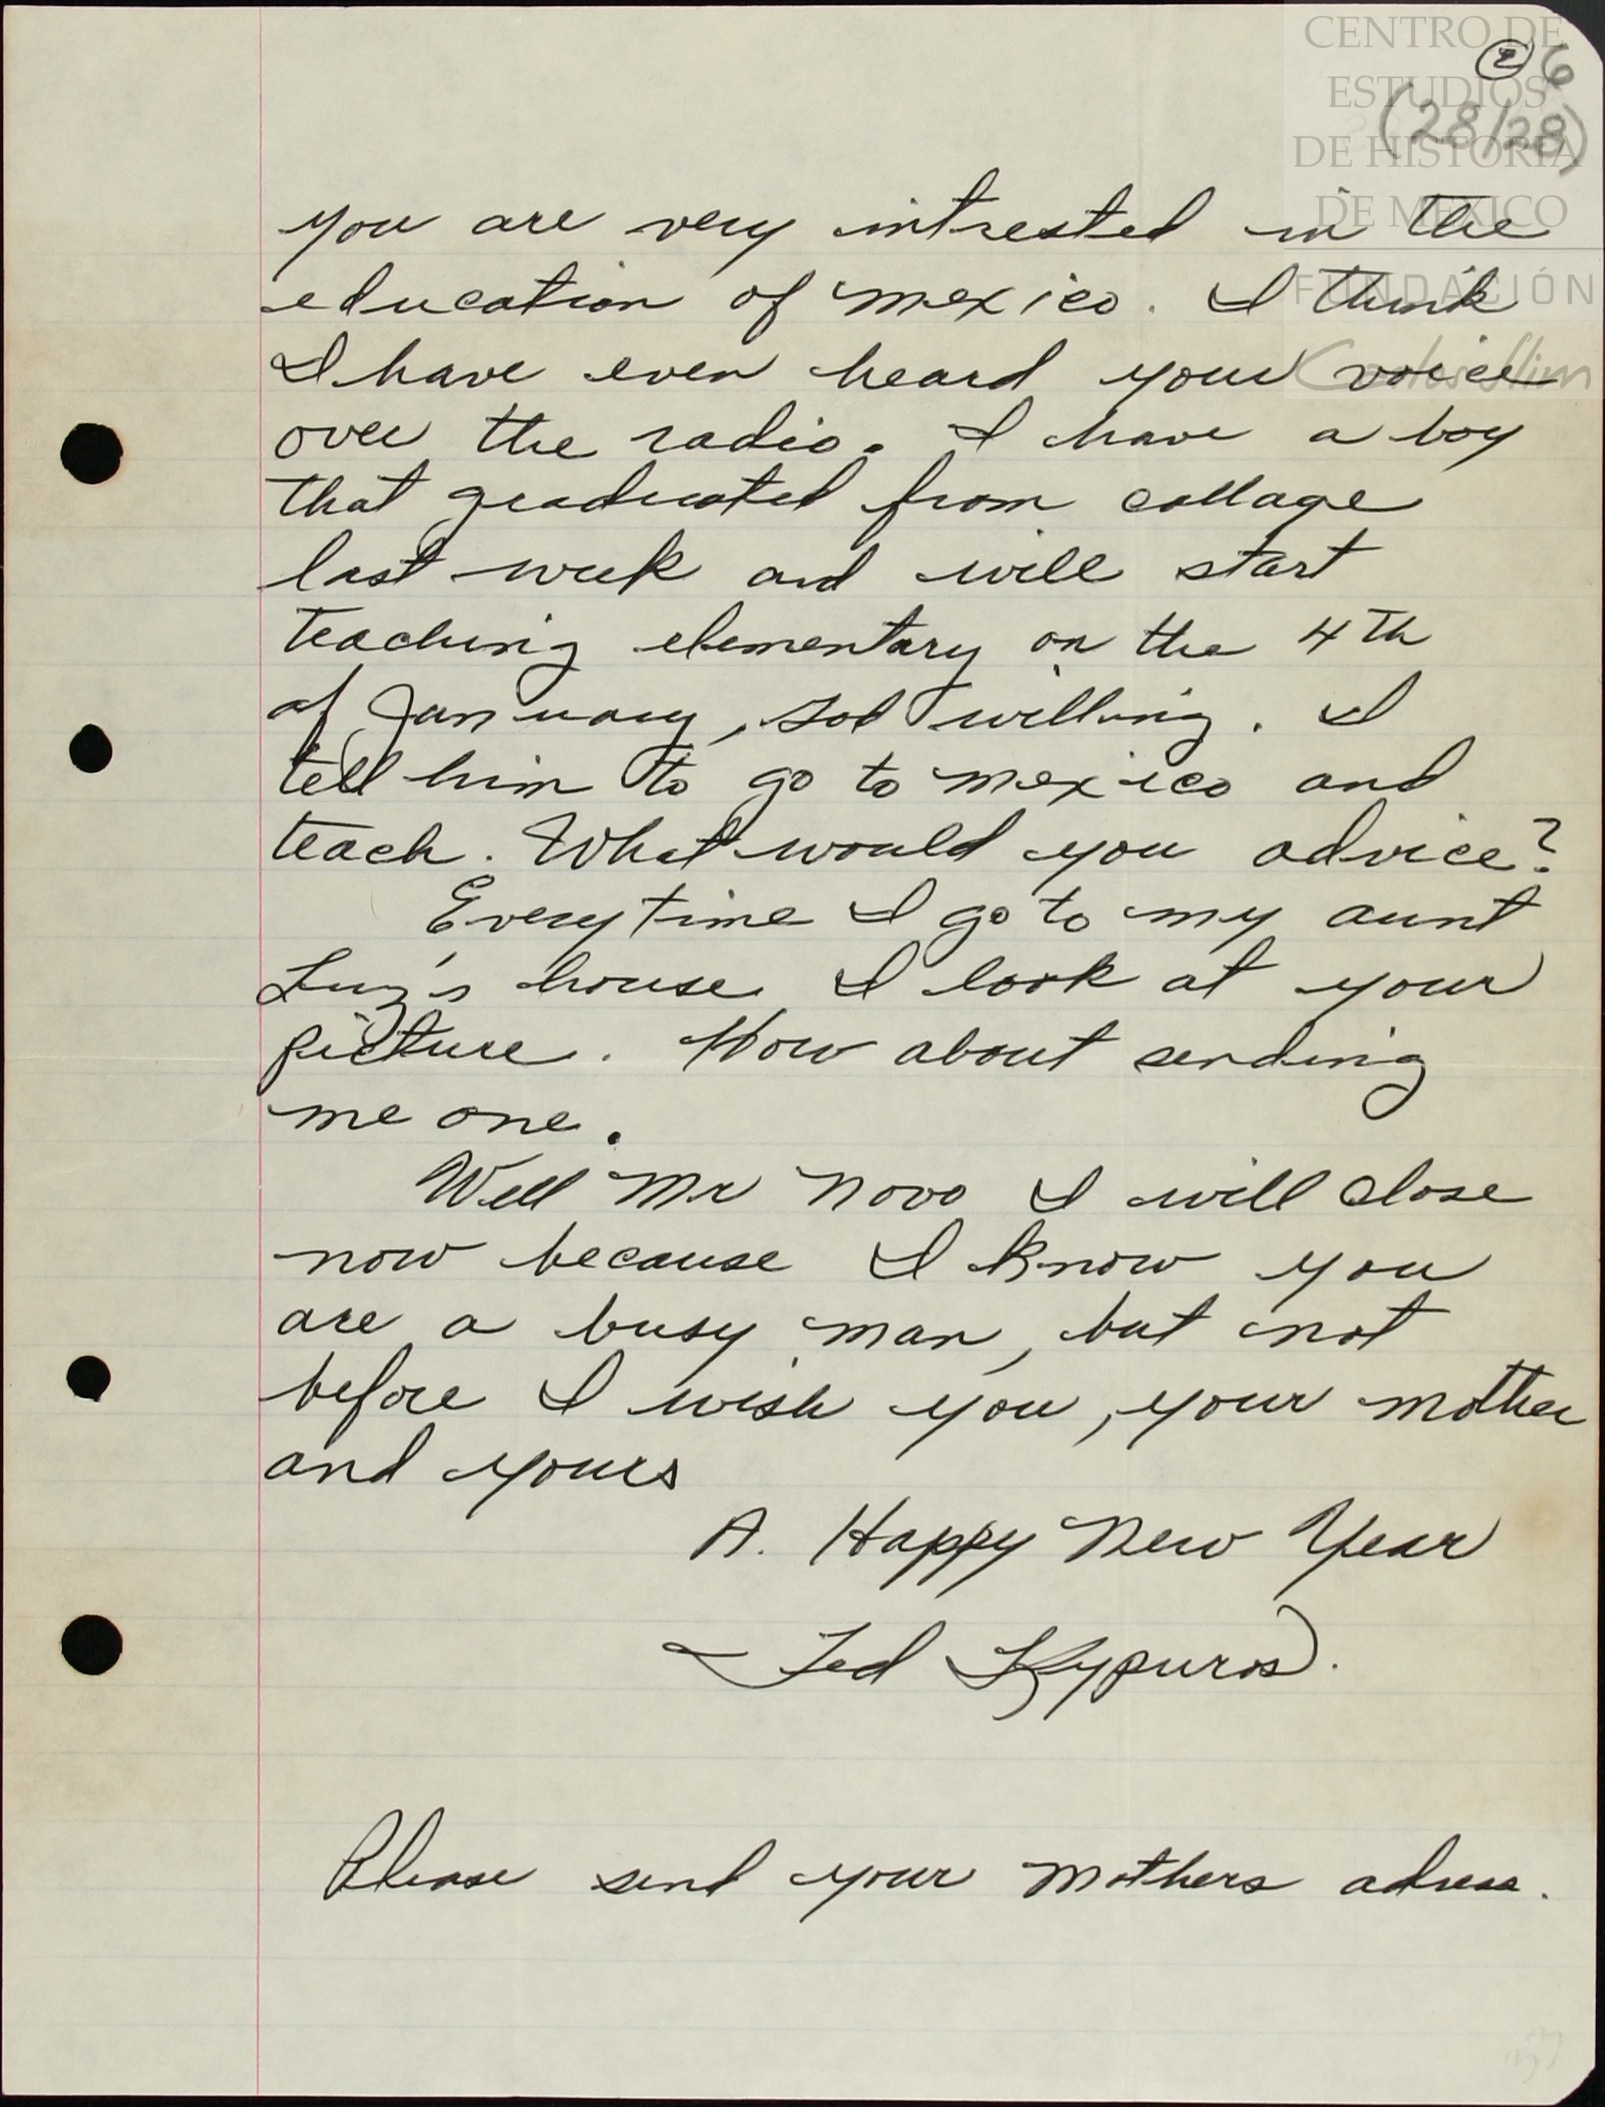 CENTRO DE
ESTUDIOS
DE HISTORIA
DE MÉXICO
FUNDACIÓN
Carlos Slim
2 6
(28/28)
you are very intrested in the
education of mexico. I think
I have even heard your voice
over the radio. I have a boy
that graduated from collage
last week and will start
teaching elementary on the 4th
of January, God willing. I
tell him to go to mexico and
teach. What would you advice?
Everytime I go to my aunt
Luz's house I look at your
picture. How about sending
me one.
Well Mr Novo I will close
now because I know you
are a busy man, but not
before I wish you, your mother
and yours
A. Happy New Year
Ted Kypuros.
Please send your mothers adress.